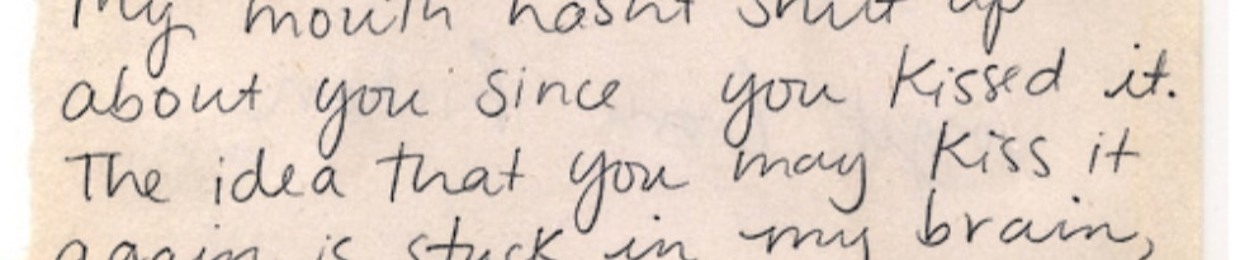 My mouth hasn't shut up
about you since you kissed it.
The idea that you may kiss it
again is stuck in my brain,